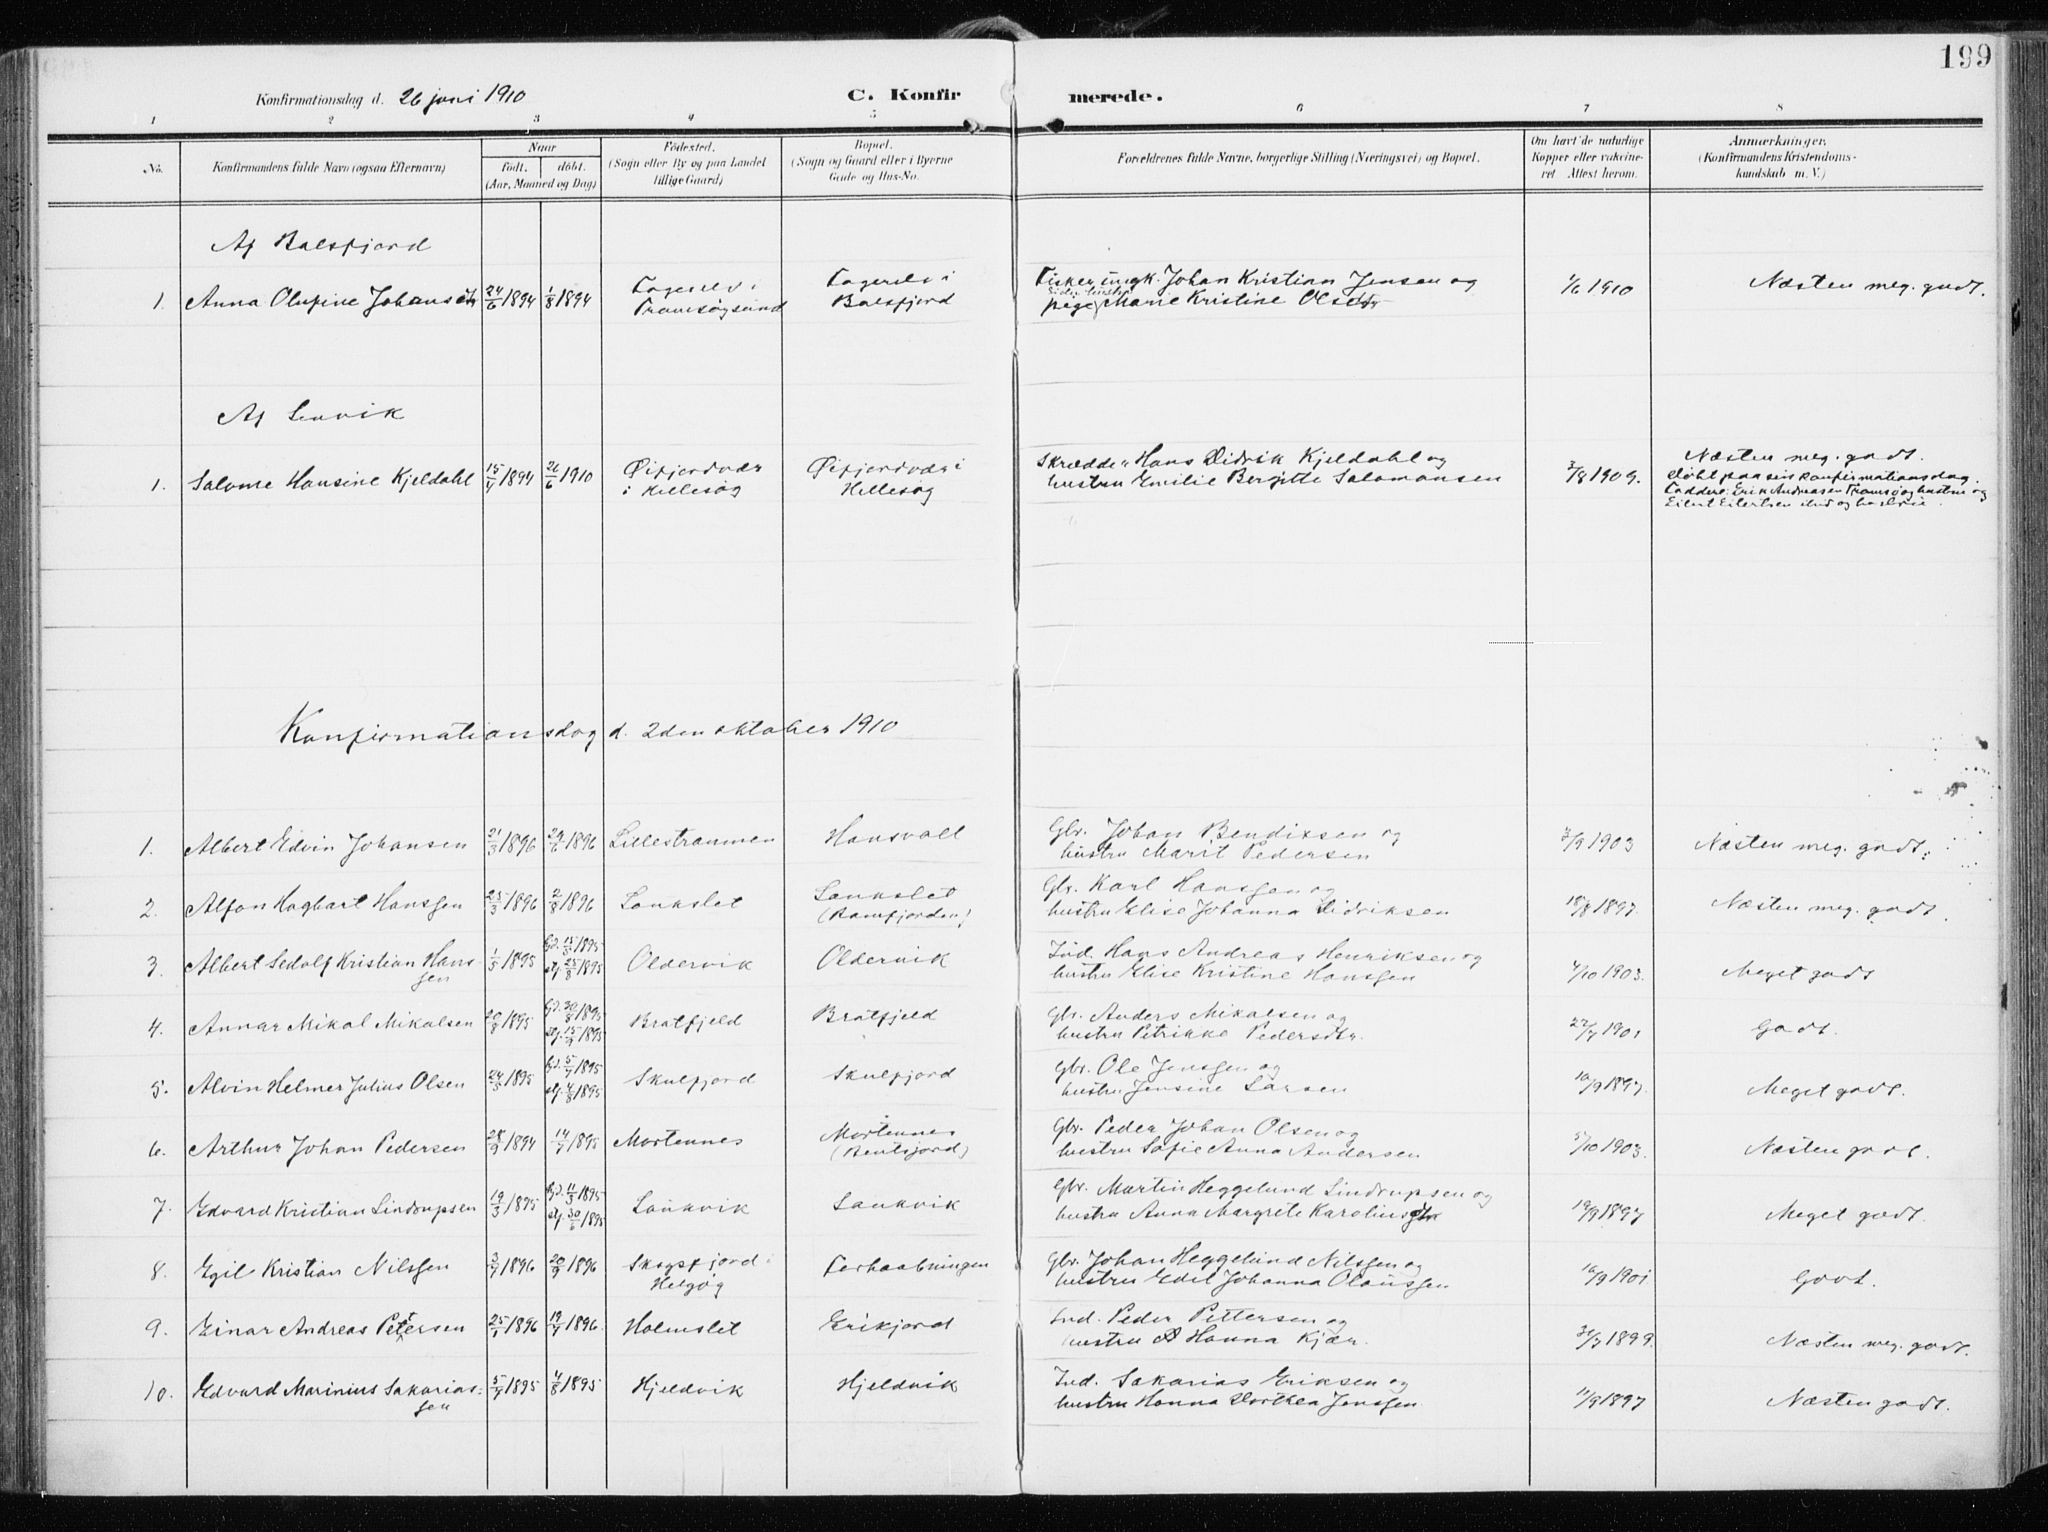 199
Konfirmationsdag d. 26 juni 1910 C. Konfirmerede.
1 2 3 4 5 6 7 8
No. Konfirmandens fulde Navn (ogsaa Efternavn) Naar født. døbt. (Aar, Maaned og Dag) Fødested. (Sogn eller By og paa Landet tillige Gaard) Bopæl. (Sogn og Gaard eller i Byerne Gade og Hus-No. Forældrenes fulde Navne, borgerlige Stilling (Næringsvei) og Bopæl. Om havt de naturlige Kopper eller vakcineret Attest herom. Anmærkninger. (Konfirmandens Kristendomskundskab m. V.)
Af Balsfjord
1. Anna Olufine Johansdtr 24/6 1894 1/8 1894 Fagerelv i Tromsøysund Fagerelv i Balsfjord Fisker ungk. Johan Kristian Jensen og pige Marie Kristine Olsdtr 1/6 1910 Næsten meg. godt.
Af Lenvik
1. Salome Hansine Kjeldahl 15/4 1894 26/6 1910 Øifjordvær i Hillesøy Øifjordvær i Hillesøy Skrædder Hans Didrik Kjeldahl og hustru Emilie Bergitte Salomonsen 3/8 1909. Næsten meg. godt.
Døbt paa sin konfirmationsdag.
Faddere: Erik Andreasen Tromsø og hustru og
Eilert Eilertsen ibid og hustru.
Konfirmationsdag d. 2den oktober 1910
1. Albert Edvin Johansen 21/3 1896 29/6 1896 Lillestraumen Hansvoll Gbr. Johan Bendixsen og hustru Marit Pedersen 3/9 1903 Næsten meg. godt.
2. Alfon Hagbart Hansgen 25/3 1896 2/8 1896 Sankslet Sankslet (Ramfjorden) Gbr. Karl Hansgen og hustru Elise Johanna Didriksen 18/8 1897. Næsten meg. godt.
3. Albert Sedolf Kristian Hansgen 1/5 1895 hjd. 15/5 1895 stf. 25/8 1895 Oldervik Oldervik Ind. Hans Andreas Henriksen og hustru Elise Kristine Hansgen 7/10 1903. Meget godt
4. Annar Mikal Mikalsen 20/8 1895 hjd. 30/8 1895 stf. 15/9 1895 Bratfjeld Bratfjeld Gbr. Anders Mikalsen og hustru Petrikke Pedersdtr. 22/7 1901 Godt.
5. Alvin Helmer Julius Olsen 24/5 1895 hjd. 5/7 1895 stf. 4/8 1895 Skulfjord Skulfjord Gbr. Ole Jensgen og hustru Jensine Larsen 10/9 1897. Meget godt.
6. Arthur Johan Pedersen 28/9 1894 14/7 1895 Mortennes Mortennes (Bentsjord) Gbr. Peder Johan Olsen og hustru Sofie Anna Andersen 5/10 1903. Næsten godt.
7. Edvard Kristian Lindrupsen 19/3 1895 hjd. 11/5 1895 stf. 30/6 1895 Lankvik Lankvik Gbr. Martin Heggelund Lindrupsen og hustru Anna Margrete Karoliusdtr 10/9 1897 Meget godt.
8. Egil Kristian Nilsgen 3/7 1896 20/9 1896 Skogsfjord i Helgøy Forhaabningen Gbr. Johan Heggelund Nilsgen og hustru Edel Johanna Olausgen 16/9 1901 Godt.
9. Einar Andreas Pettersen 25/1 1896 19/7 1896. Holmslet Erikjord Ind. Peder Pettersen og hustru Hanna Kjær. 31/7 1899. Næsten meg. godt.
10. Edvard Marinius Sakariasgen 5/7 1895 4/8 1895 Hjeldvik Hjeldvik Ind. Sakarias Eriksen og hustru Hanna Dorthea Jensgen. 11/9 1897 Næsten godt.